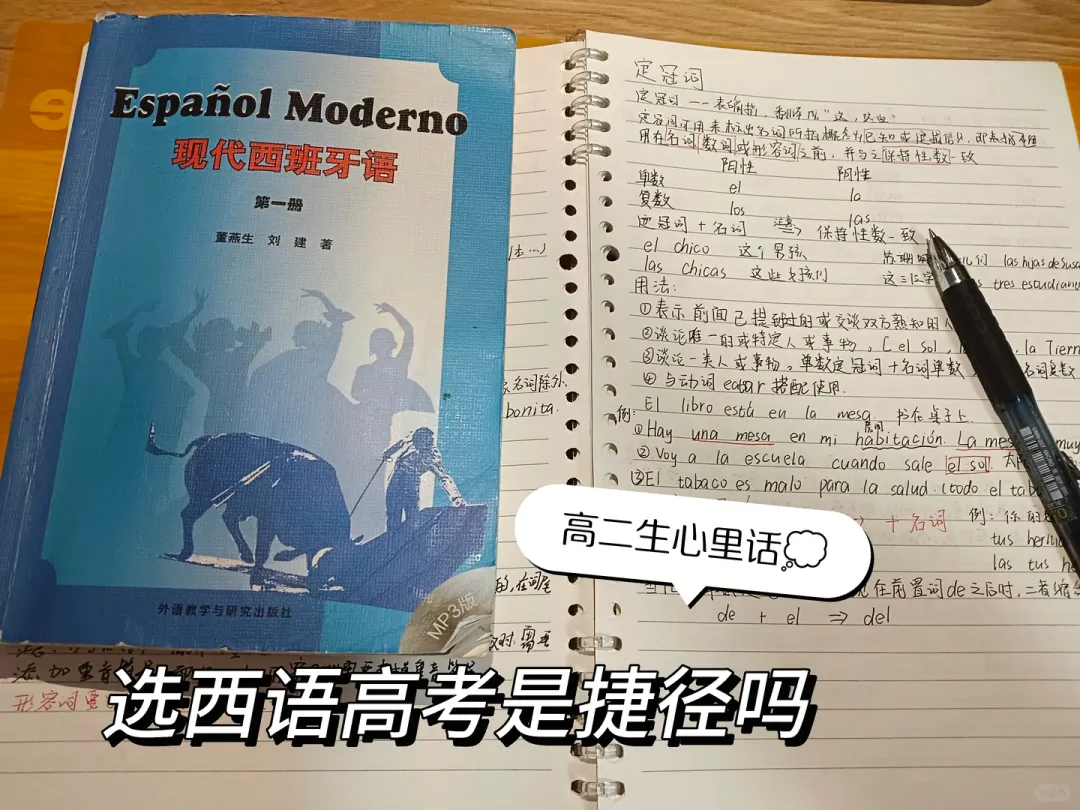 Español Moderno
现代西班牙语
第一册
董燕生 刘 建 著
外语教学与研究出版社
MP3版
定冠词
定冠词 —— 表确指,翻译成"这,这些"
用在名词 数词或形容词之前,并与之保持性数一致
阳性 阴性
单数 el la
复数 los las
定冠词 + 名词 ⇒ 保持性数一致
el chico 这个男孩
las hijas de Susa
las chicas 这些女孩们
tres estudiante
用法:
①表示前面已提到过的或交谈双方熟知的人
②谈论唯一的或特定人或事物。[el sol, la Tierr
③谈论一类人或事物。单数定冠词+名词单数
④与动词 estar 搭配使用.
El libro está en la mesa. 书在桌子上
例:
①Hay una mesa en mi habitación. La mes muy
②Voy a la escuela cuando sale el sol.
③El tabaco es malo para la salud. (todo el tab
+ 名词 例:你的
tus herm
las tus he
在前置词de之后时,二者缩合
de + el ⇒ del
名词除外.
bonita.
添加重音符号
形容词要
高二生心里话
选西语高考是捷径吗